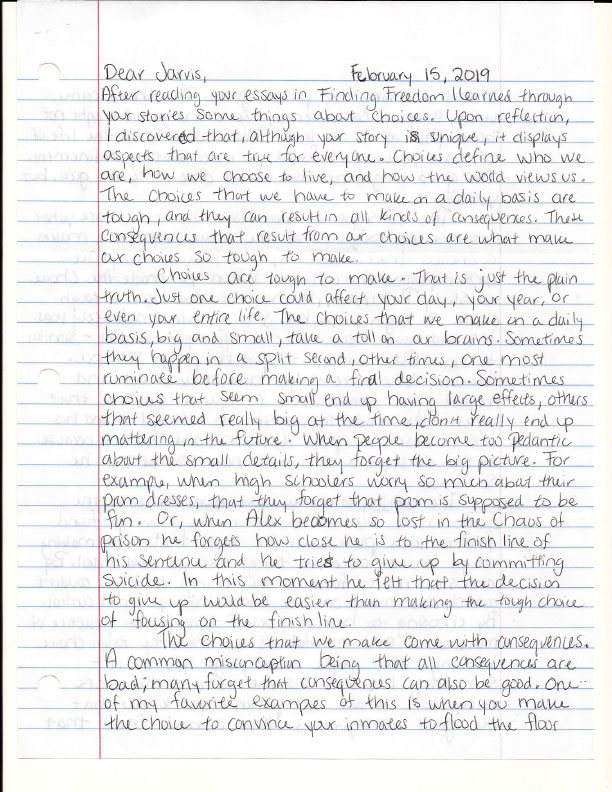 Dear Jarvis, February 15, 2019
After reading your essays in Finding Freedom I learned through
your stories some things about choices. Upon reflection,
I discovered that, although your story is unique, it displays
aspects that are true for everyone. Choices define who we
are, how we choose to live, and how the world views us.
The choices that we have to make on a daily basis are
tough, and they can result in all kinds of consequences. These
consequences that result from our choices are what make
our choices so tough to make.
Choices are tough to make. That is just the plain
truth. Just one choice could affect your day, your year, or
even your entire life. The choices that we make on a daily
basis, big and small, take a toll on our brains. Sometimes
they happen in a split second, other times, one most
ruminate before making a final decision. Sometimes
choices that seem small end up having large effects, others
that seemed really big at the time, don't really end up
mattering in the future. When people become too pedantic
about the small details, they forget the big picture. For
example, when high schoolers worry so much about their
prom dresses, that they forget that prom is supposed to be
fun. Or, when Alex becomes so lost in the chaos of
prison he forgets how close he is to the finish line of
his sentence and he tries to give up by committing
suicide. In this moment he felt that the decision
to give up would be easier than making the tough choice
of focusing on the finish line.
The choices that we make come with consequences.
A common misconception being that all consequences are
bad; many forget that consequences can also be good. One
of my favorite examples of this is when you make
the choice to convince your inmates to flood the floor